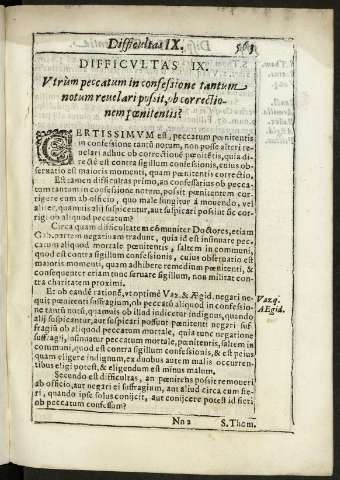 Difficultas IX.
DIFFICVLTAS IX.
Vtrùm peccatum in confessione tantum
notum reuelari possit, ob correctio-
nem pœnitentis?
CERTISSIMVM est, peccatum pœnitentis
in confessione tantũ notum, non posse alteri re-
uelari adhuc ob correctionẽ pœnitẽtis, quia di-
rectè est contra sigillum confessionis, cuius ob-
seruatio est maioris momenti, quam pœnitentis correctio,
Est tamen difficultas primo, an confessarius ob pecca-
tum tantum in confessione notum, possit pœnitentem cor-
rigere eum ab officio, quo male fungitur amouendo, vel
aliter, quamuis alij suspicentur, aut suspicari possint sic cor-
rigi ob aliquod peccatum?
Circa quam difficultatem cõmuniter Doctores, etiam
Gab. partem negatiuam tradunt, quia id est insinuare pec-
catum aliquod mortale pœnitentis, saltem in communi,
quod est contra sigillum confessionis, cuius obseruatio est
maioris momenti, quam adhibere remedium pœnitenti, &
consequenter etiam tunc seruare sigillum, non militat con-
tra charitatem proximi.
Et ob candẽ rationẽ, vt optimè Vaz. & Ægid. negari ne-
quit pœnitenti suffragium, ob peccatũ aliquod in confessio-
ne tantũ notũ, quamuis ob illud indicetur indignus, quando
alij suspicantur, aut suspicari possunt pœnitenti negari suf-
fragiũ ob aliquod peccatum mortale, quia tunc negatione
suffragij, insinuatur peccatum mortale, pœnitentis, saltem in
communi, quod est contra sigillum confessionis, & est peius
quam eligere indignum, ex duobus autem malis occurren-
tibus eligi potest, & eligendum est minus malum.
Vaz. q.
AEgid.
Secundo est difficultas, an pœnitens possit remoueri
ab officio, aut negari ei suffragium, aut aliud circa eum fie-
ri, quando ipse solus conijcit, aut conijcere potest id fieri
ob peccatum confessum?
Nn 2 S. Thom.